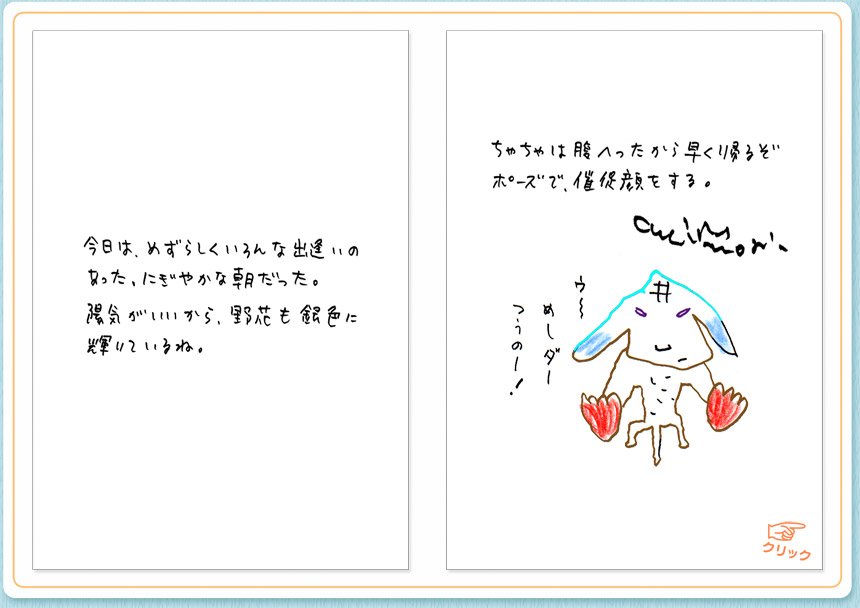 今日は、めずらしくいろんな出逢いの
あった、にぎやかな朝だった。
陽気がいいから、野花も銀色に
輝いているね。
ちゃちゃは腹へったから早く帰るぞ
ポーズで、催促顔をする。
ウ〜
めしダー
つうのー!
クリック